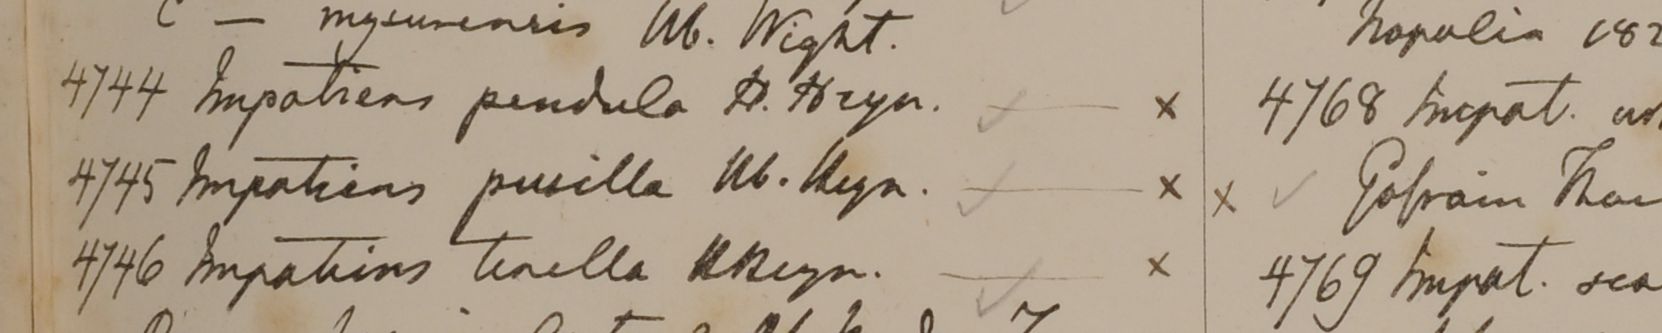 C — mysurensis Hb. Wight.
4744 Impatiens pendula H. Heyn. — x
4745 Impatiens pusilla Hb. Heyn. — x
4746 Impatiens tenella H Heyn. — x
Napalia 182
4768 Impat.
x Gossain Than
4769 Impat. sca